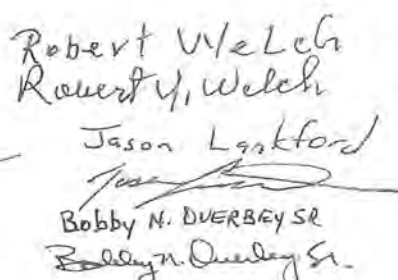 Robert Welch
Robert Y. Welch
Jason Lankford
Bobby N. OVERBEY SR
Bobby N. Overbey Sr.